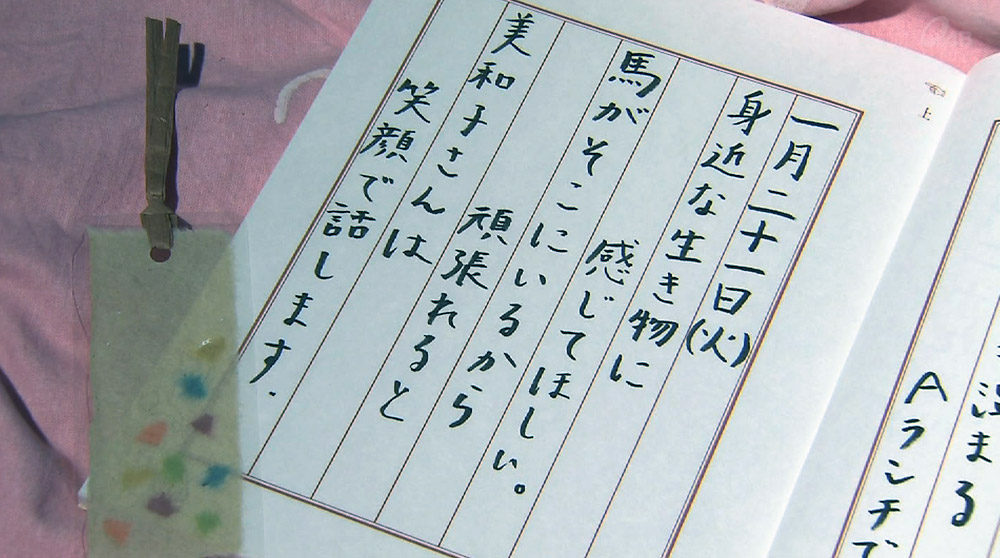 一月二十一日(火)
身近な生き物に
感じてほしい。
馬がそこにいるから
頑張れると
美和子さんは
笑顔で話します.
上
まる
Aランチで